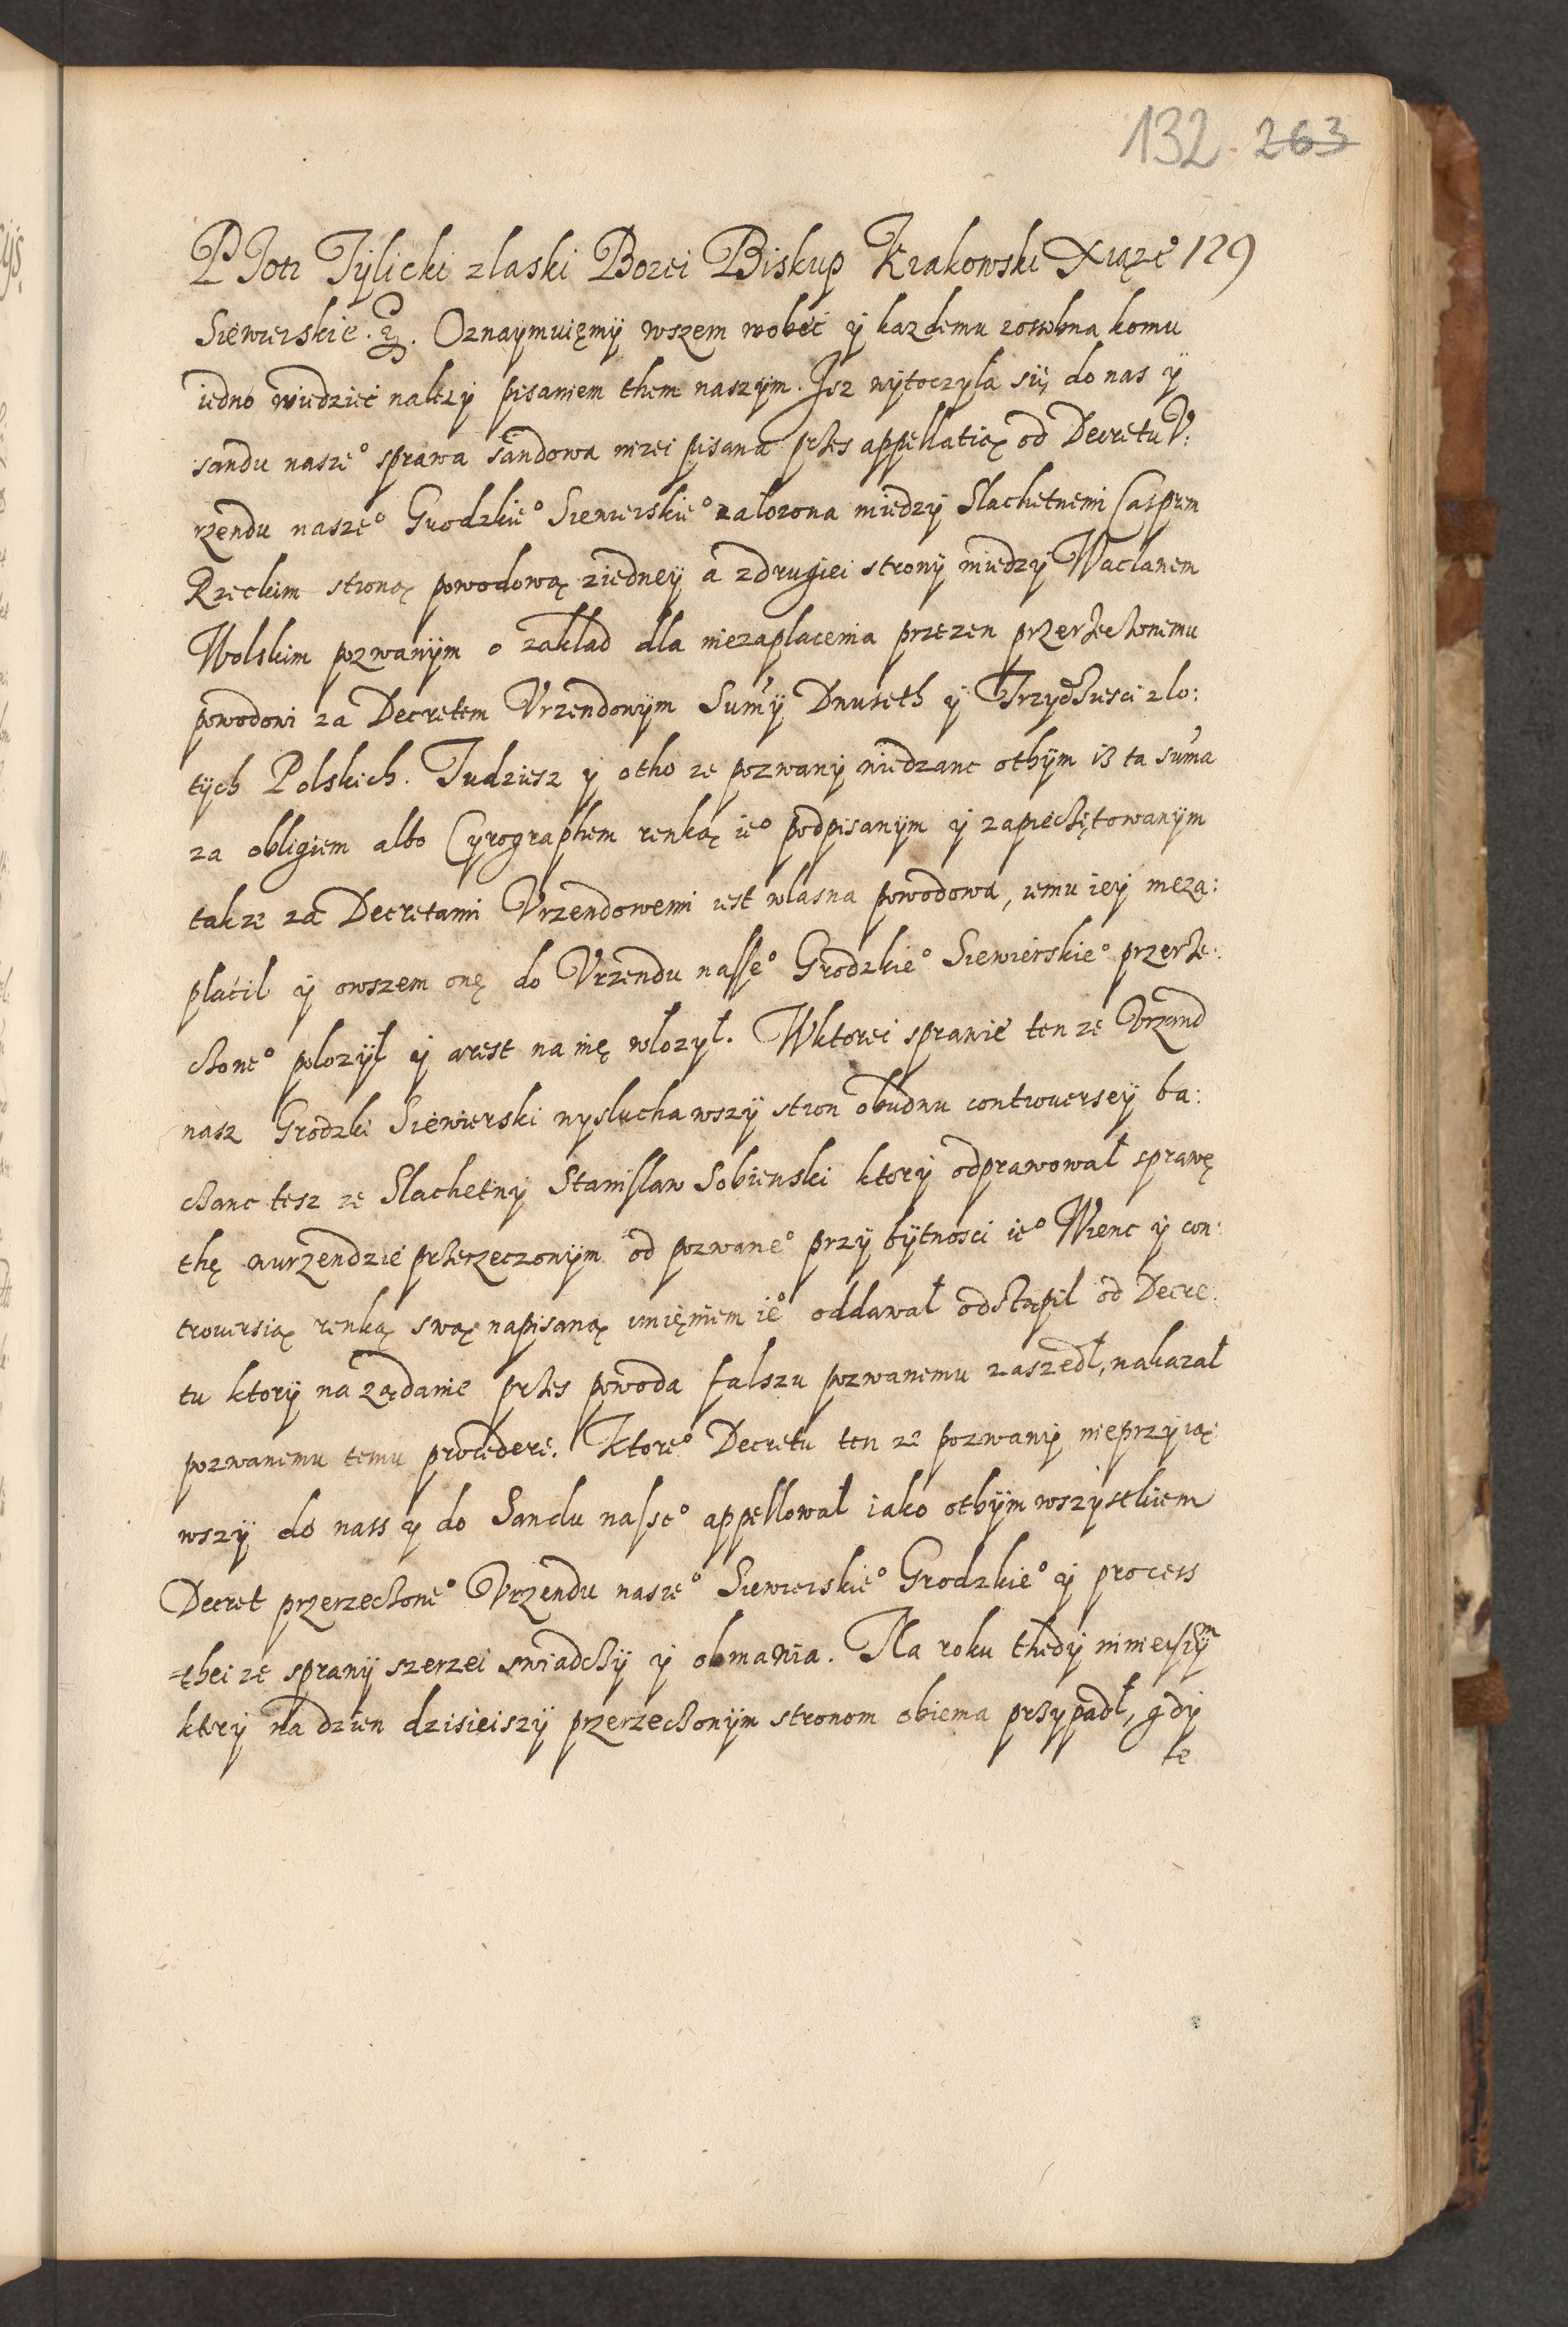 132. 263
PJotr Tÿlicki z laski Bozei Biskup Krakowski Xiąze° 129
Siewierskie. &. Oznaÿmuięmÿ wszem wobec ÿ kazdemu zossobna komu
iedno wiedziec nalezÿ pisaniem them naszÿm. Jsz wÿtoczyla się do nas ÿ
sandu nasze° sprawa sandowa nizei pisana przes appellatią od Decretu V:
rzendu nasze° Grodzkie° Siewierskie° zalozona miedzÿ Slachetnemi Casprem
Rzeckim stroną powodową ziedneÿ a zdrugiei stronÿ miedzÿ Waclawem
Wolskim pozwanÿm o zaklad dla niezaplacenia przezen przerzeczonemu
powodowi za Decretem Vrzendowÿm Sumÿ Dwuseth ÿ Trzydziesci zlo:
tÿch Polskich. Tudziesz ÿ otho ze pozwanÿ wiedzanc othÿm iż ta suma
za obligiem albo Cyrographem renką ie° podpisanÿm ÿ zapieczętowanÿm
takze za Decretami Vrzendowemi iest wlasna powodowa, iemu ieÿ nieza:
placil ÿ owszem onę do Vrzendu nasse° Grodzkie° Siewierskie° przerze:
czone° polozÿł ÿ arest na nię wlozył. Wktorei sprawie ten ze Vrzand
nasz Grodzki Siewierski wysluchawszÿ stron obudwu controverseÿ ba:
czanc tesz ze Slachetnÿ Stanislaw Sobienski ktorÿ odprawował sprawę
thę wurzendzie przerzeczonÿm od pozwane° przÿ bÿtnosci ie° Wienc ÿ con:
troversią renką swą napisaną imięniem ie° oddawał odstąpil od Decre:
tu ktorÿ na ządanie przes powoda falszu pozwanemu zaszedł, nakazał
pozwanemu temu procedere. Ktore° Decretu ten ze pozwanÿ nieprzyią:
wszÿ do nass ÿ do Sandu nasse° appellował iako othÿm wszÿstkiem
Decret przerzeczone° Vrzendu nasze° Siewierskie° Grodzkie° ÿ process
thei ze sprawÿ szerzei swiadczÿ ÿ obmawia. Na roku thedÿ ninieiszÿm
ktorÿ na dzien dzisieiszÿ przerzeczonÿm stronom obiema przypadł, gdÿ
te